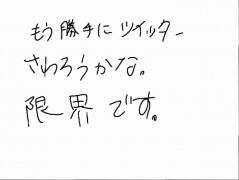 もう勝手にツイッター
さわろうかな。
限界です。